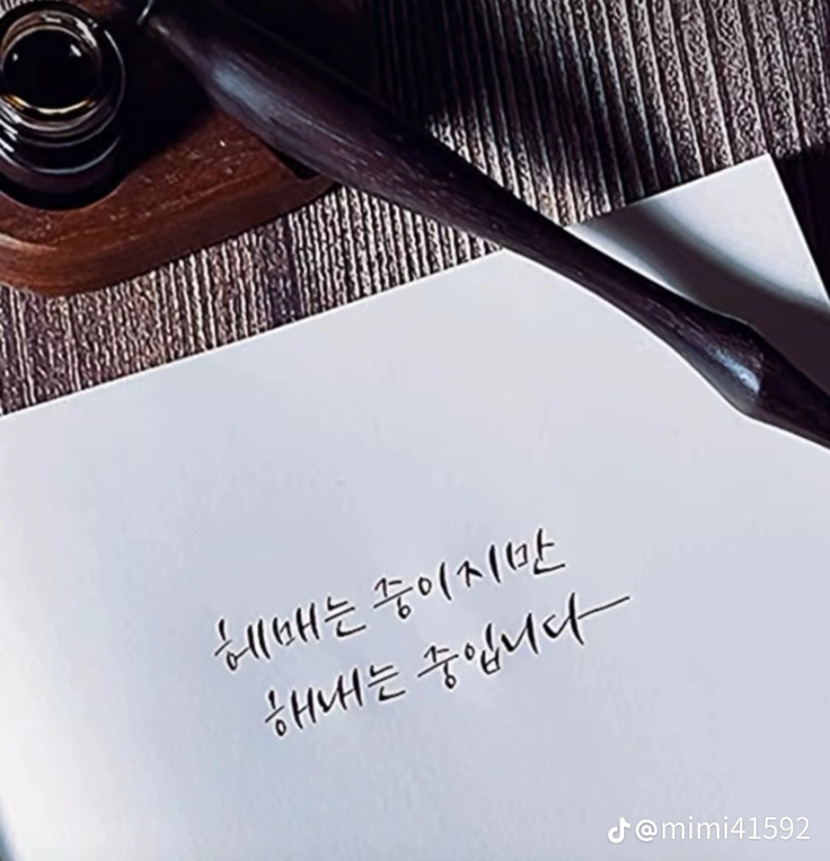 헤매는 중이지만
해내는 중입니다
@mimi41592